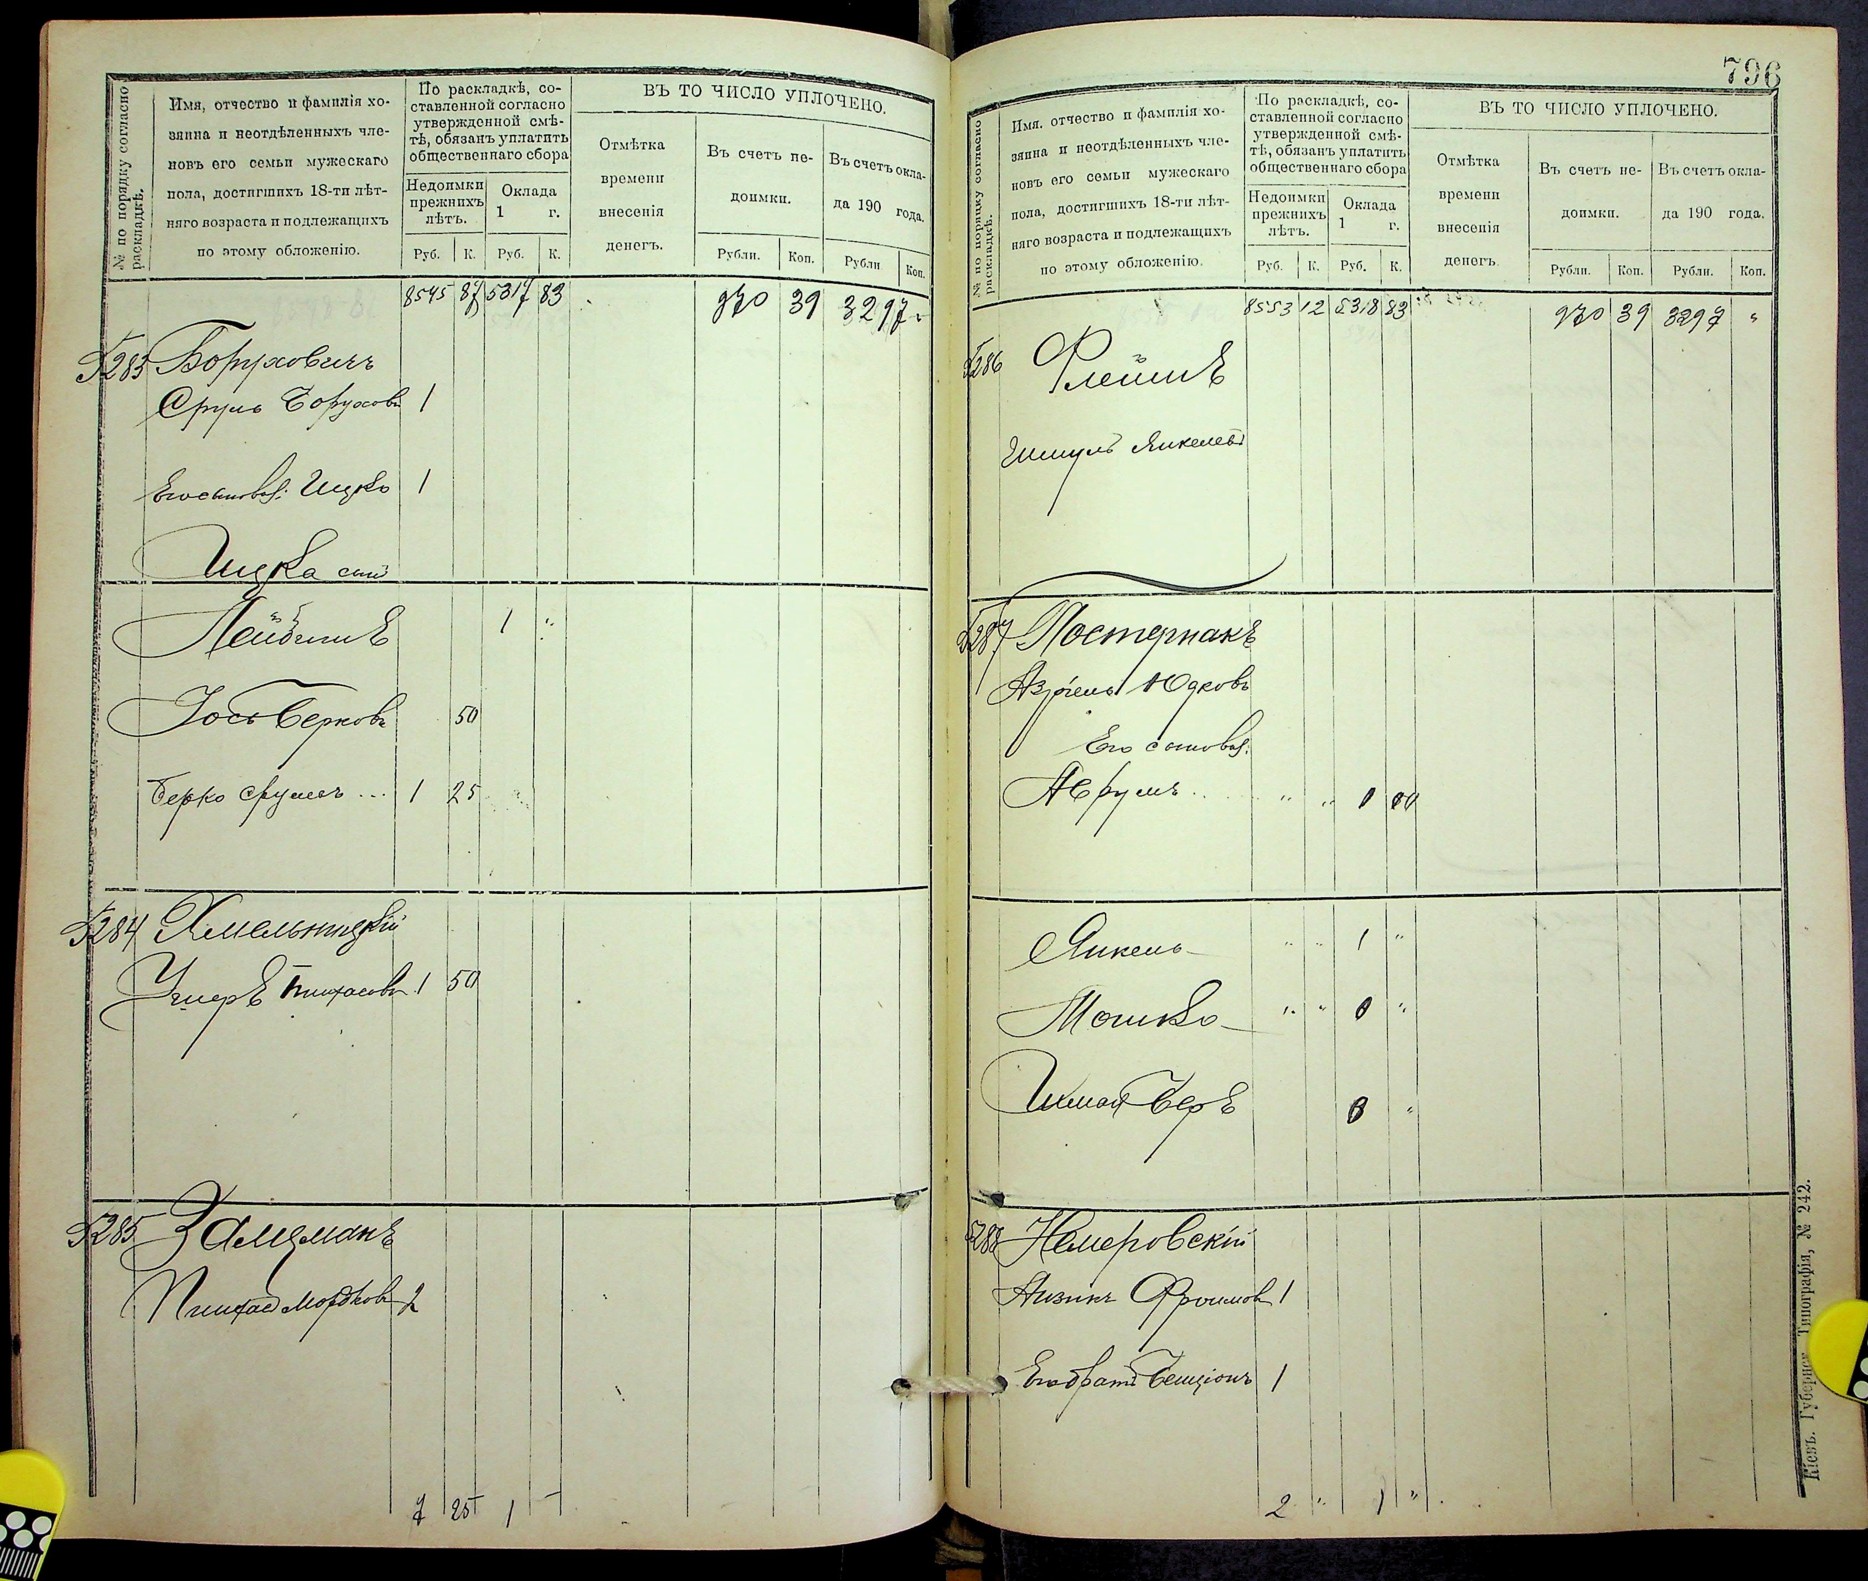 № по порядку согласно раскладкѣ.
Имя, отчество и фамилія хо-
зяина и неотдѣленныхъ чле-
новъ его семьи мужескаго
пола, достигшихъ 18-ти лѣт-
няго возраста и подлежащихъ
по этому обложенію.
По раскладкѣ, со-
ставленной согласно
утвержденной смѣ-
тѣ, обязанъ уплатить
общественнаго сбора
Недоимки
прежнихъ
лѣтъ.
Оклада
1 г.
Руб. К. Руб. К.
ВЪ ТО ЧИСЛО УПЛОЧЕНО.
Отмѣтка
времени
внесенія
денегъ.
Въ счетъ не-
доимки.
Въ счетъ окла-
да 190 года.
Рубли. Коп. Рубли Коп.
8545 87 5317 83 970 39 3297 "
5283 Боруховичъ
Сруль Борухов 1
Его сыновья: Ицко 1
Лейбишъ 1 "
Іось Берковъ 50
Берко Срулев ... 1 25
5284 Хмельницкій
Ушеръ Пинхасов 1 50
5285 Залцманъ
Пинхас Мордков 2
7 25 1 –
796
№ по порядку согласно раскладкѣ.
Имя. отчество и фамилія хо-
зяина и неотдѣленныхъ чле-
новъ его семьи мужескаго
пола, достигшихъ 18-ти лѣт-
няго возраста и подлежащихъ
по этому обложенію.
По раскладкѣ, со-
ставленной согласно
утвержденной смѣ-
тѣ, обязанъ уплатить
общественнаго сбора
Недоимки
прежнихъ
лѣтъ.
Оклада
1 г.
Руб. К. Руб. К.
ВЪ ТО ЧИСЛО УПЛОЧЕНО.
Отмѣтка
времени
внесенія
денегъ.
Въ счетъ не-
доимки.
Въ счетъ окла-
да 190 года.
Рубли. Коп. Рубли. Коп.
8553 12 5318 83 970 39 3297 "
5286 Флейшъ
Шмуль Янкелев
5287 Постернакъ
Азріель Юдковъ
Его сыновья:
Аврумъ " "
Янкель " " 1 "
Мошко " " "
5288 Немеровскій
Айзикъ Фроимов 1
Его братъ Бенціонъ 1
2 " 1 "
Кіевъ. Губернск. Типографія, № 242.